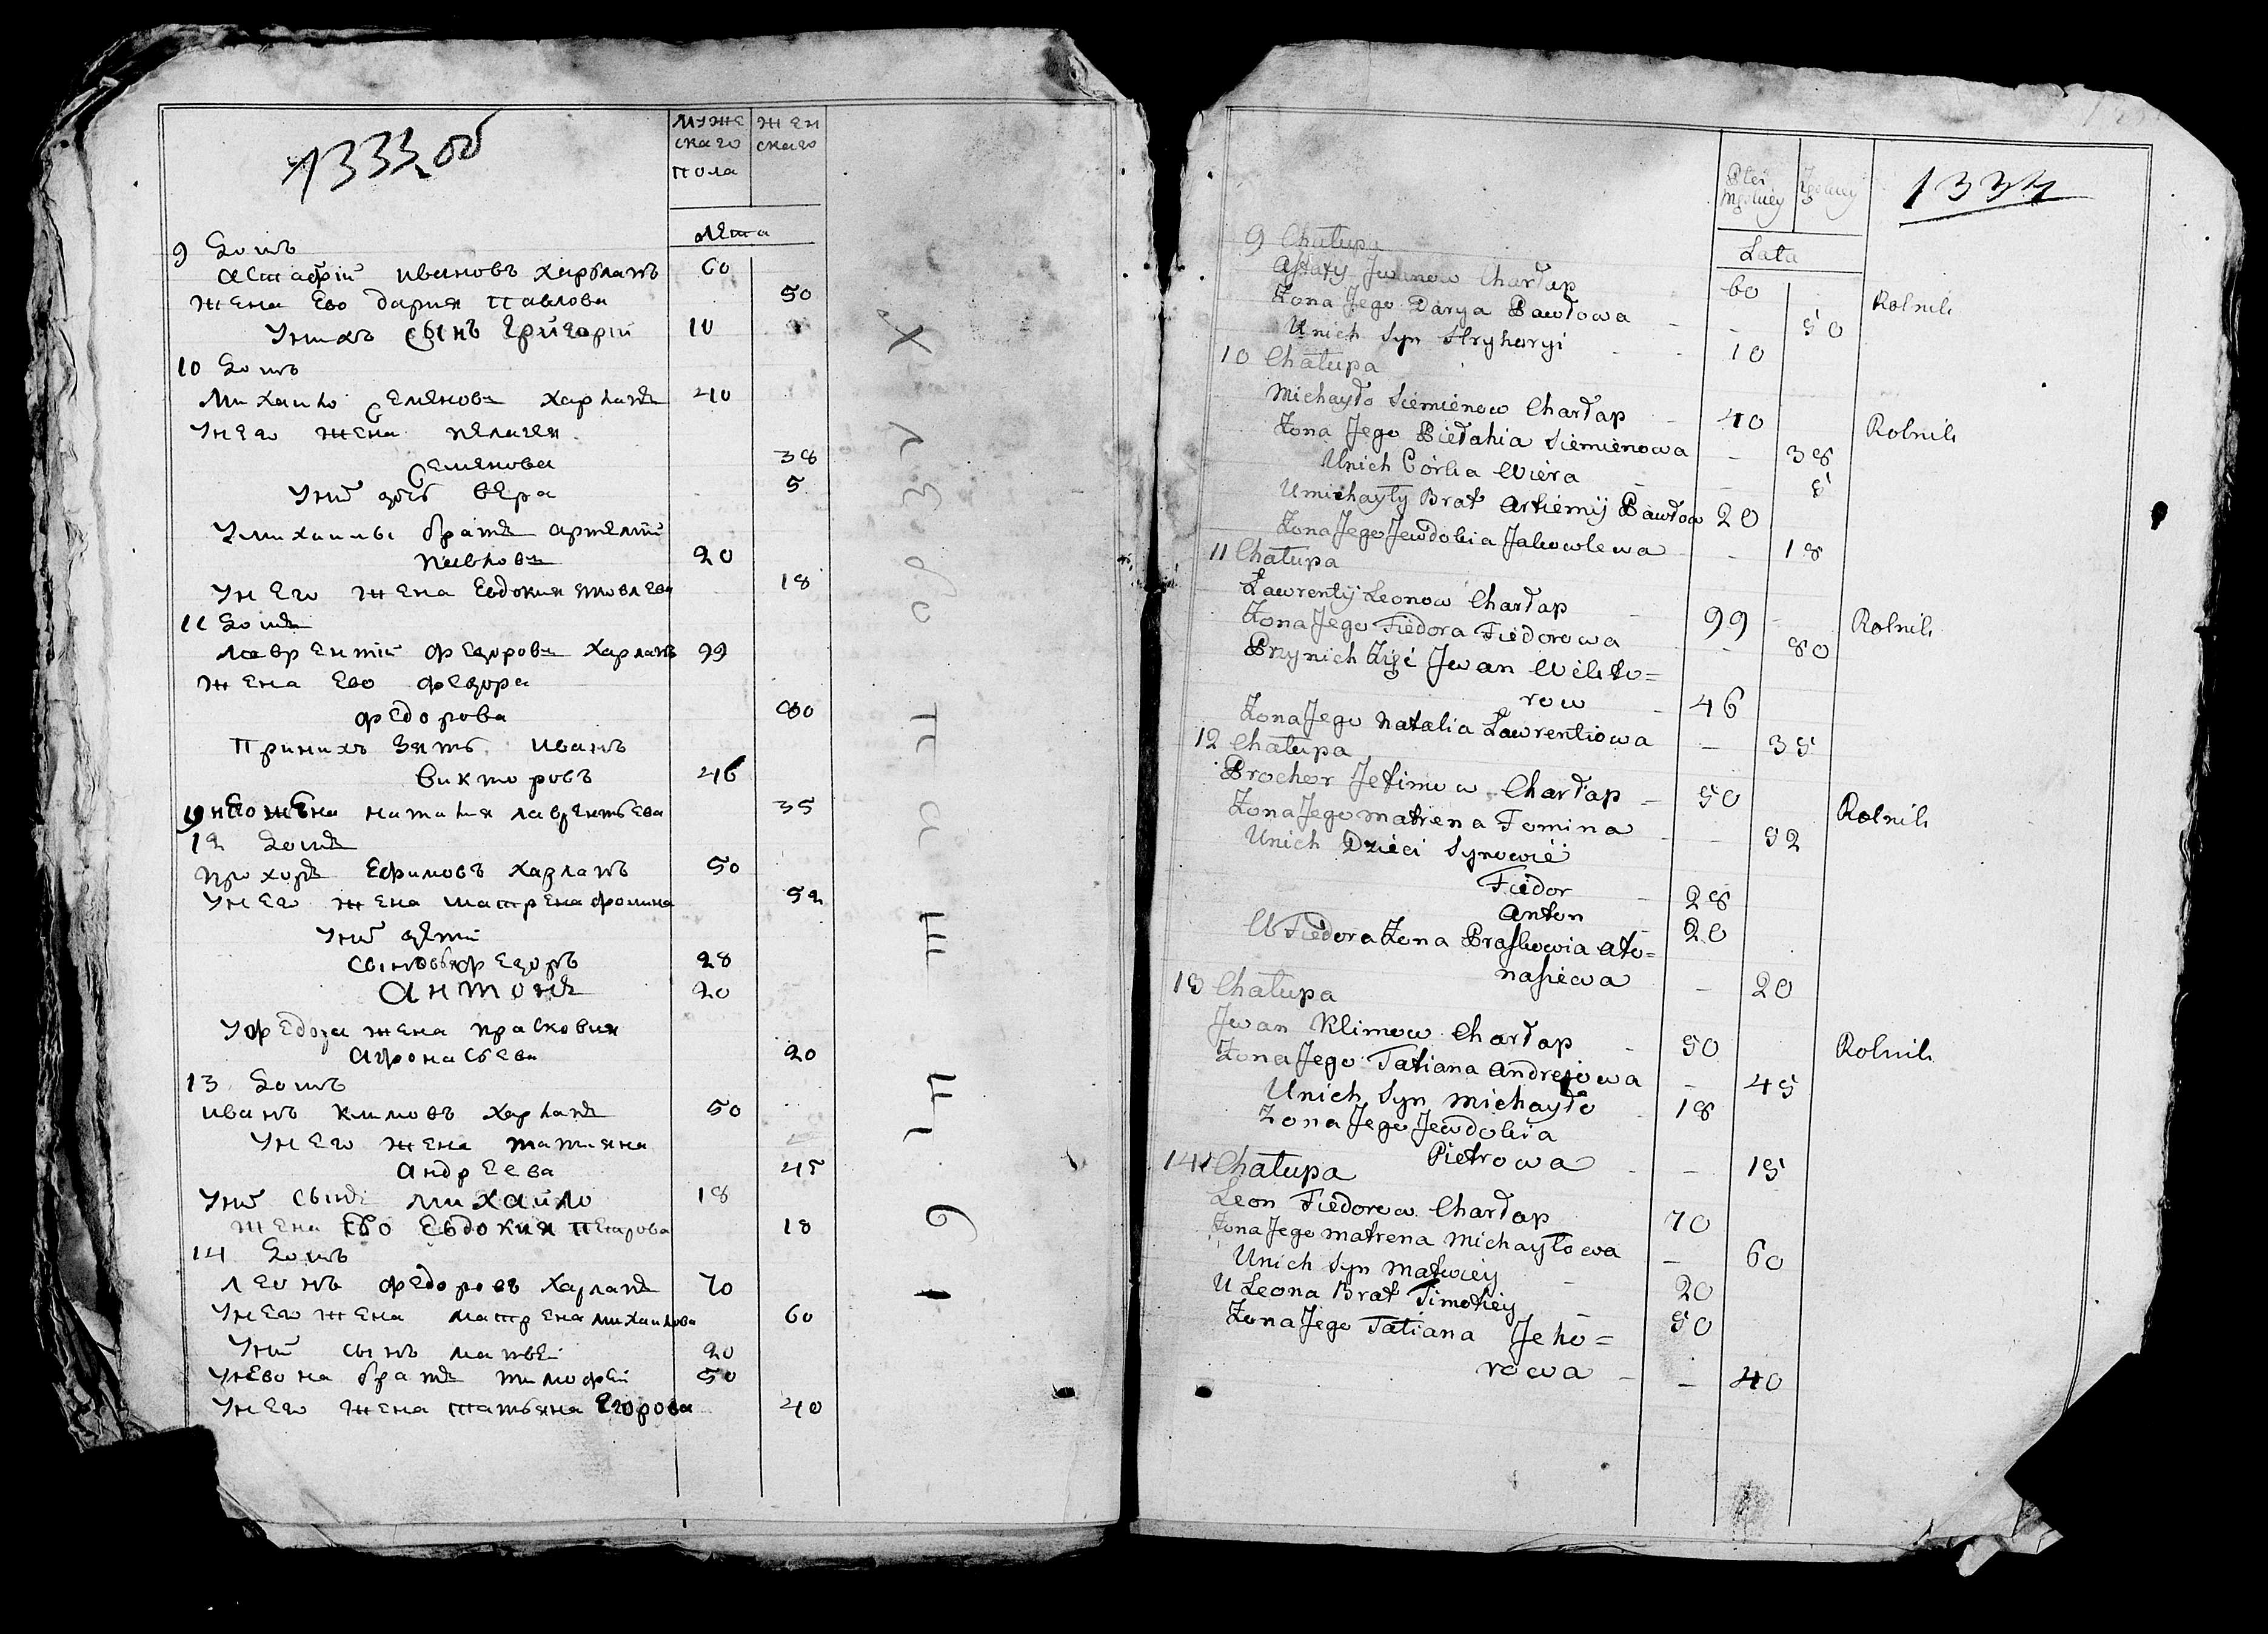 1333 об
муже
скаго
пола
жен
скаго
лѣта
9 Домъ
Астафій Ивановъ Харлапъ 60
жена Ево Дария Павлова 50
Унихъ Сынъ Григорій 10
10 Домъ
Михаило Семяновъ Харлапъ 40
Унего жена Пелагея
Семянова 38
Унихъ дочь Вера 5
Умихаилы братъ Артемій
Павловъ 20
Унего жена Евдокия Яковлева 18
11 Домъ
Лаврентій Федоровъ Харлапъ 99
жена Ево Федора
Федорова 80
Принихъ Зять Иванъ
Викторовъ 46
Унего жена Наталия Лаврентьева 35
12 Домъ
Прохоръ Ефимовъ Харлапъ 50
Унего жена Матрена Фомина 52
Унихъ дѣти
Сыновья Федоръ 28
Антонъ 20
Уфедора жена Прасковия
Афонасьева 20
13 Домъ
Иванъ Климовъ Харлапъ 50
Унего жена Татияна
Андреева 45
Унихъ Сынъ Михайло 18
жена Ево Евдокия Петрова 18
14 Домъ
Леонъ Федоровъ Харлапъ 70
Унего жена Матрена Михаилова 60
Унихъ сынъ Матвеі 20
Улевона братъ Тимофеі 50
Унего жена Татьяна Егорова 40
1334
Płci
Męskiey
Żeńskiey
Lata
9 Chałupa
Astafy Jwanow Charłap 60 Rolnik
Żona Jego Darya Pawłowa - 50
Unich Syn Hryhoryi 10
10 Chałupa
Michayło Siemienow Charłap 40 Rolnik
Żona Jego Piełahia Siemienowa - 38
Unich Córka Wiera - 5
Umichayły Brat Artiemij Pawłow 20
Żona Jego Jewdokia Jakowlewa - 18
11 Chałupa
Ławrentij Leonow Charłap 99 Rolnik
Żona Jego Fiedora Fiedorowa - 80
Przynich Zięć Jwan Wikto=
row 46
Żona Jego Natalia Ławrentiowa - 35
12 Chałupa
Prochor Jefimow Charłap 50 Rolnik
Żona Jego Matrena Fomina - 52
Unich Dzieci Synowie
Fiedor 28
Anton 20
U Fiedora Żona Praskowia Afo=
nasiewa - 20
13 Chałupa
Jwan Klimow Charłap 50 Rolnik
Żona Jego Tatiana Andrejewa - 45
Unich Syn Michayło 18
Żona Jego Jewdokia
Pietrowa - 15
14 Chałupa
Leon Fiedorow Charłap 70
Żona Jego Matrena Michayłowa - 60
Unich Syn Matwiey 20
U Leona Brat Timofiey 50
Żona Jego Tatiana Jeho=
rowa - 40